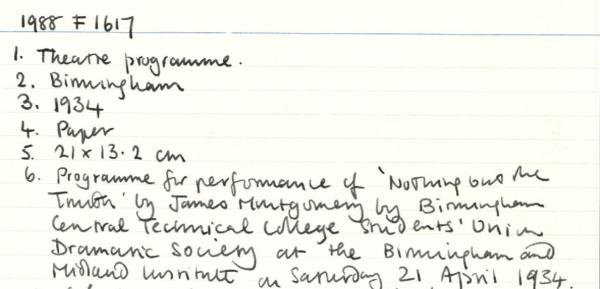 1988 F 1617
1. Theatre programme.
2. Birmingham
3. 1934
4. Paper
5. 21 x 13.2 cm
6. Programme for performance of 'Nothing but the
Truth' by James Montgomery by Birmingham
Central Technical College Students' Union
Dramatic Society at the Birmingham and
Midland Institute on Saturday 21 April 1934.